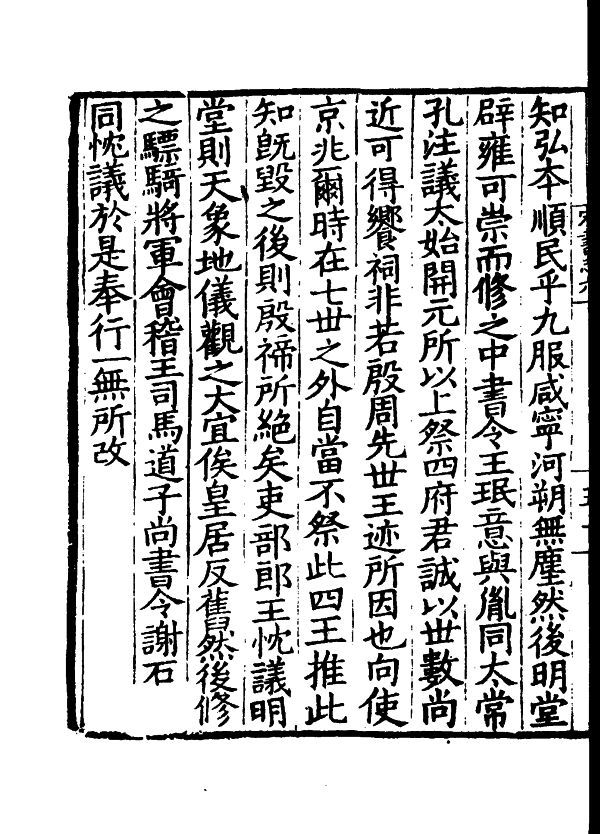 知弘本順民乎九服咸寧河朔無塵然後明堂
辟雍可崇而修之中書令王珉意與胤同太常
孔注議太始開元所以上祭四府君誠以世數尚
近可得饗祠非若殷周先世王迹所因也向使
京兆爾時在七世之外自當不祭此四王推此
知旣毀之後則殷禘所絕矣吏部郎王忱議明
堂則天象地儀觀之大宜俟皇居反舊然後修
之驃騎將軍會稽王司馬道子尚書令謝石
同忱議於是奉行一無所改